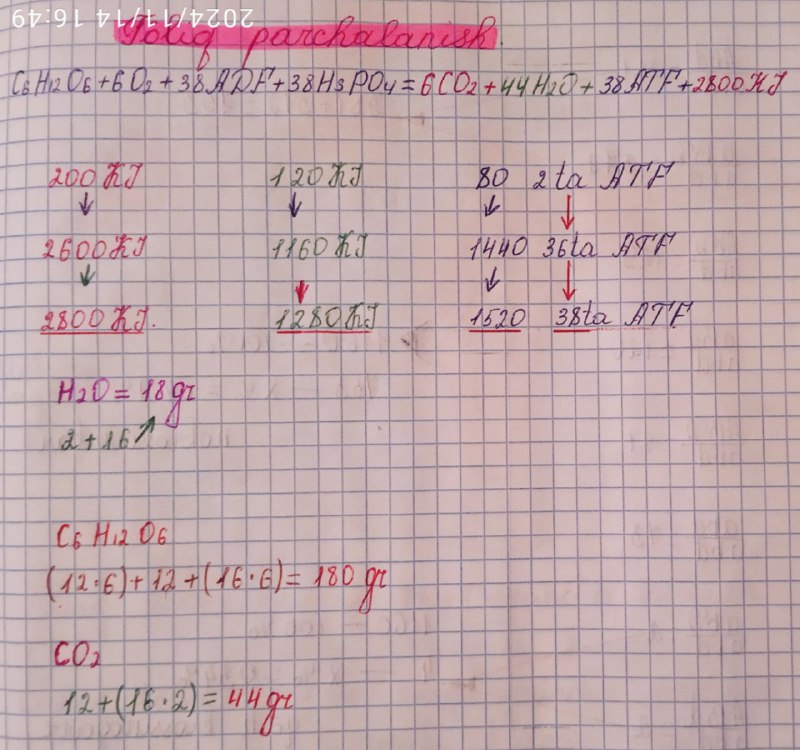 2024/11/14 16:49
Toliq parchalanish.
C6H12O6+6O2+38ADF+38H3PO4=6CO2+44H2O+38ATF+2800KJ
200KJ 120KJ 80 2ta ATF
↓ ↓ ↓ ↓
2600KJ 1160KJ 1440 36ta ATF
↓ ↓ ↓ ↓
2800KJ. 1280KJ 1520 38ta ATF
H2O = 18gr
2+16↗
C6H12O6
(12·6)+12+(16·6)=180gr
CO2
12+(16·2)=44gr